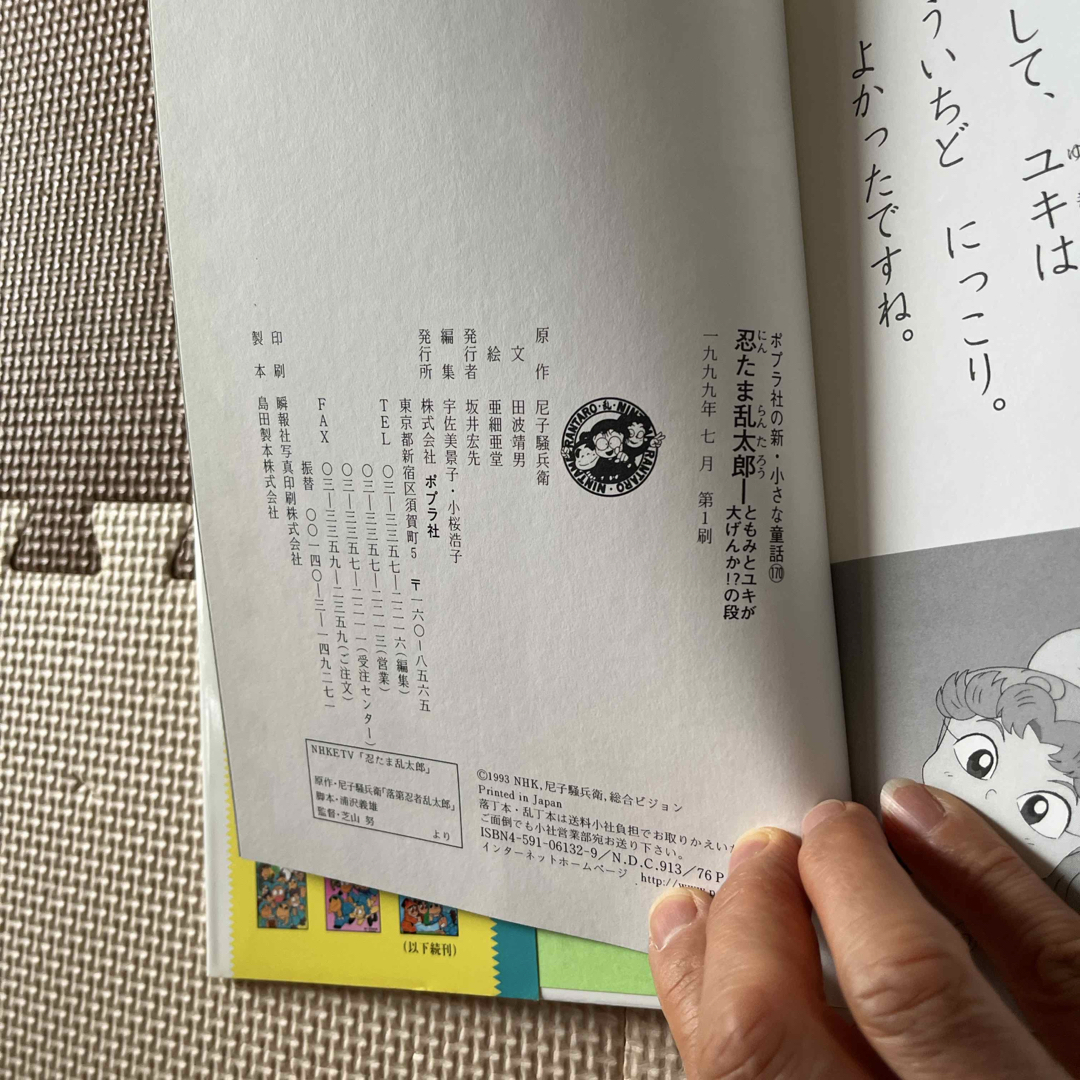 して、ユキは
ういちど にっこり。
よかったですね。
ポプラ社の新・小さな童話170
忍たま乱太郎―ともみとユキが
にん らんたろう
大げんか!?の段
一九九九年 七月 第1刷
原作 尼子騒兵衛
文 田波靖男
絵 亜細亜堂
発行者 坂井宏先
編集 宇佐美景子・小桜浩子
発行所 株式会社 ポプラ社
東京都新宿区須賀町5 〒一六〇―八五六五
TEL 〇三―三三五七―二二一六(編集)
〇三―三三五七―二二一三(営業)
〇三―三三五七―二二一一(受注センター)
FAX 〇三―三三五九―二三五九(ご注文)
振替 〇〇一四〇―三―一四九二七一
印刷 瞬報社写真印刷株式会社
製本 島田製本株式会社
RANTARO・乱・NINTAMA
RANTARO・NINTAMA
NHKETV「忍たま乱太郎」
原作・尼子騒兵衛「落第忍者乱太郎」
脚本・浦沢義雄
監督・芝山 努
より
©1993 NHK,尼子騒兵衛,総合ビジョン
Printed in Japan
落丁本・乱丁本は送料小社負担でお取りかえいた
ご面倒でも小社営業部宛お送り下さい。
ISBN4-591-06132-9/N.D.C.913/76P
インターネットホームページ http://www.p
(以下続刊)